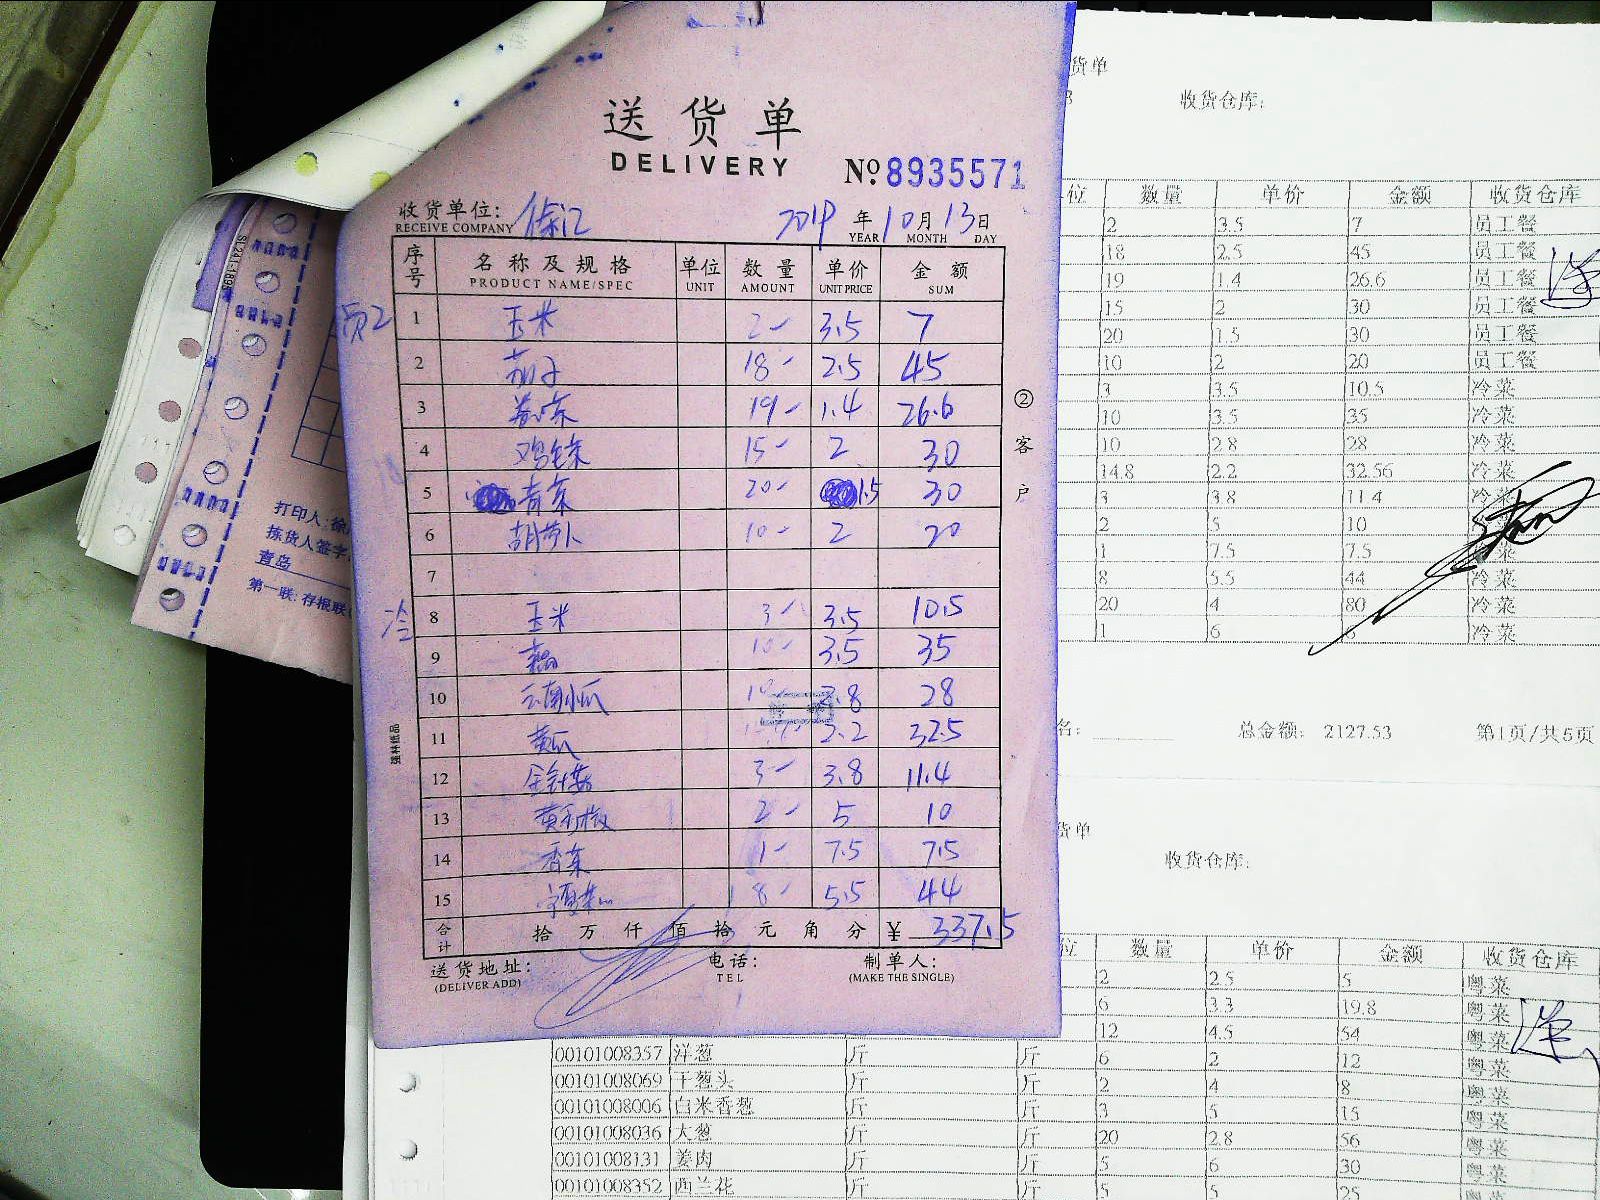 送货单
DELIVERY
No 8935571
收货单位: 徐汇 2019年10月13日
RECEIVE COMPANY YEAR MONTH DAY
序号 名称及规格 单位 数量 单价 金额
PRODUCT NAME/SPEC UNIT AMOUNT UNIT PRICE SUM
员工 1 玉米 2 3.5 7
2 茄子 18 2.5 45
3 19 1.4 26.6
4 鸡毛菜 15 2 30
5 青菜 20 1.5 30
6 胡萝卜 10 2 20
7
冷 8 玉米 3 3.5 10.5
9 10 3.5 35
10 云南小瓜 10 2.8 28
11 黄瓜 2.2 32.5
12 金针菇 3 3.8 11.4
13 黄彩椒 2 5 10
14 香菜 1 7.5 7.5
15 8 5.5 44
合计 拾万仟佰拾元角分 ¥ 337.5
送货地址: 电话: 制单人:
(DELIVER ADD) TEL (MAKE THE SINGLE)
②客户
强林纸品
SL241-1898
打印人: 徐
拣货人签字
青岛
第一联: 存根联
货单
收货仓库:
位 数量 单价 金额 收货仓库
2 3.5 7 员工餐
18 2.5 45 员工餐
19 1.4 26.6 员工餐
15 2 30 员工餐
20 1.5 30 员工餐
10 2 20 员工餐
3 3.5 10.5 冷菜
10 3.5 35 冷菜
10 2.8 28 冷菜
14.8 2.2 32.56 冷菜
3 3.8 11.4 冷菜
2 5 10
1 7.5 7.5
8 5.5 44 冷菜
20 4 80 冷菜
1 6 6 冷菜
名: 总金额: 2127.53 第1页/共5页
货单
收货仓库:
位 数量 单价 金额 收货仓库
2 2.5 5 粤菜
6 3.3 19.8 粤菜
12 4.5 54 粤菜
00101008357 洋葱 斤 斤 6 2 12 粤菜
00101008069 干葱头 斤 斤 2 4 8 粤菜
00101008006 白米香葱 斤 斤 3 5 15 粤菜
00101008036 大葱 斤 斤 20 2.8 56 粤菜
00101008131 姜肉 斤 斤 5 6 30 粤菜
00101008352 西兰花 斤 斤 5 5 25 粤菜